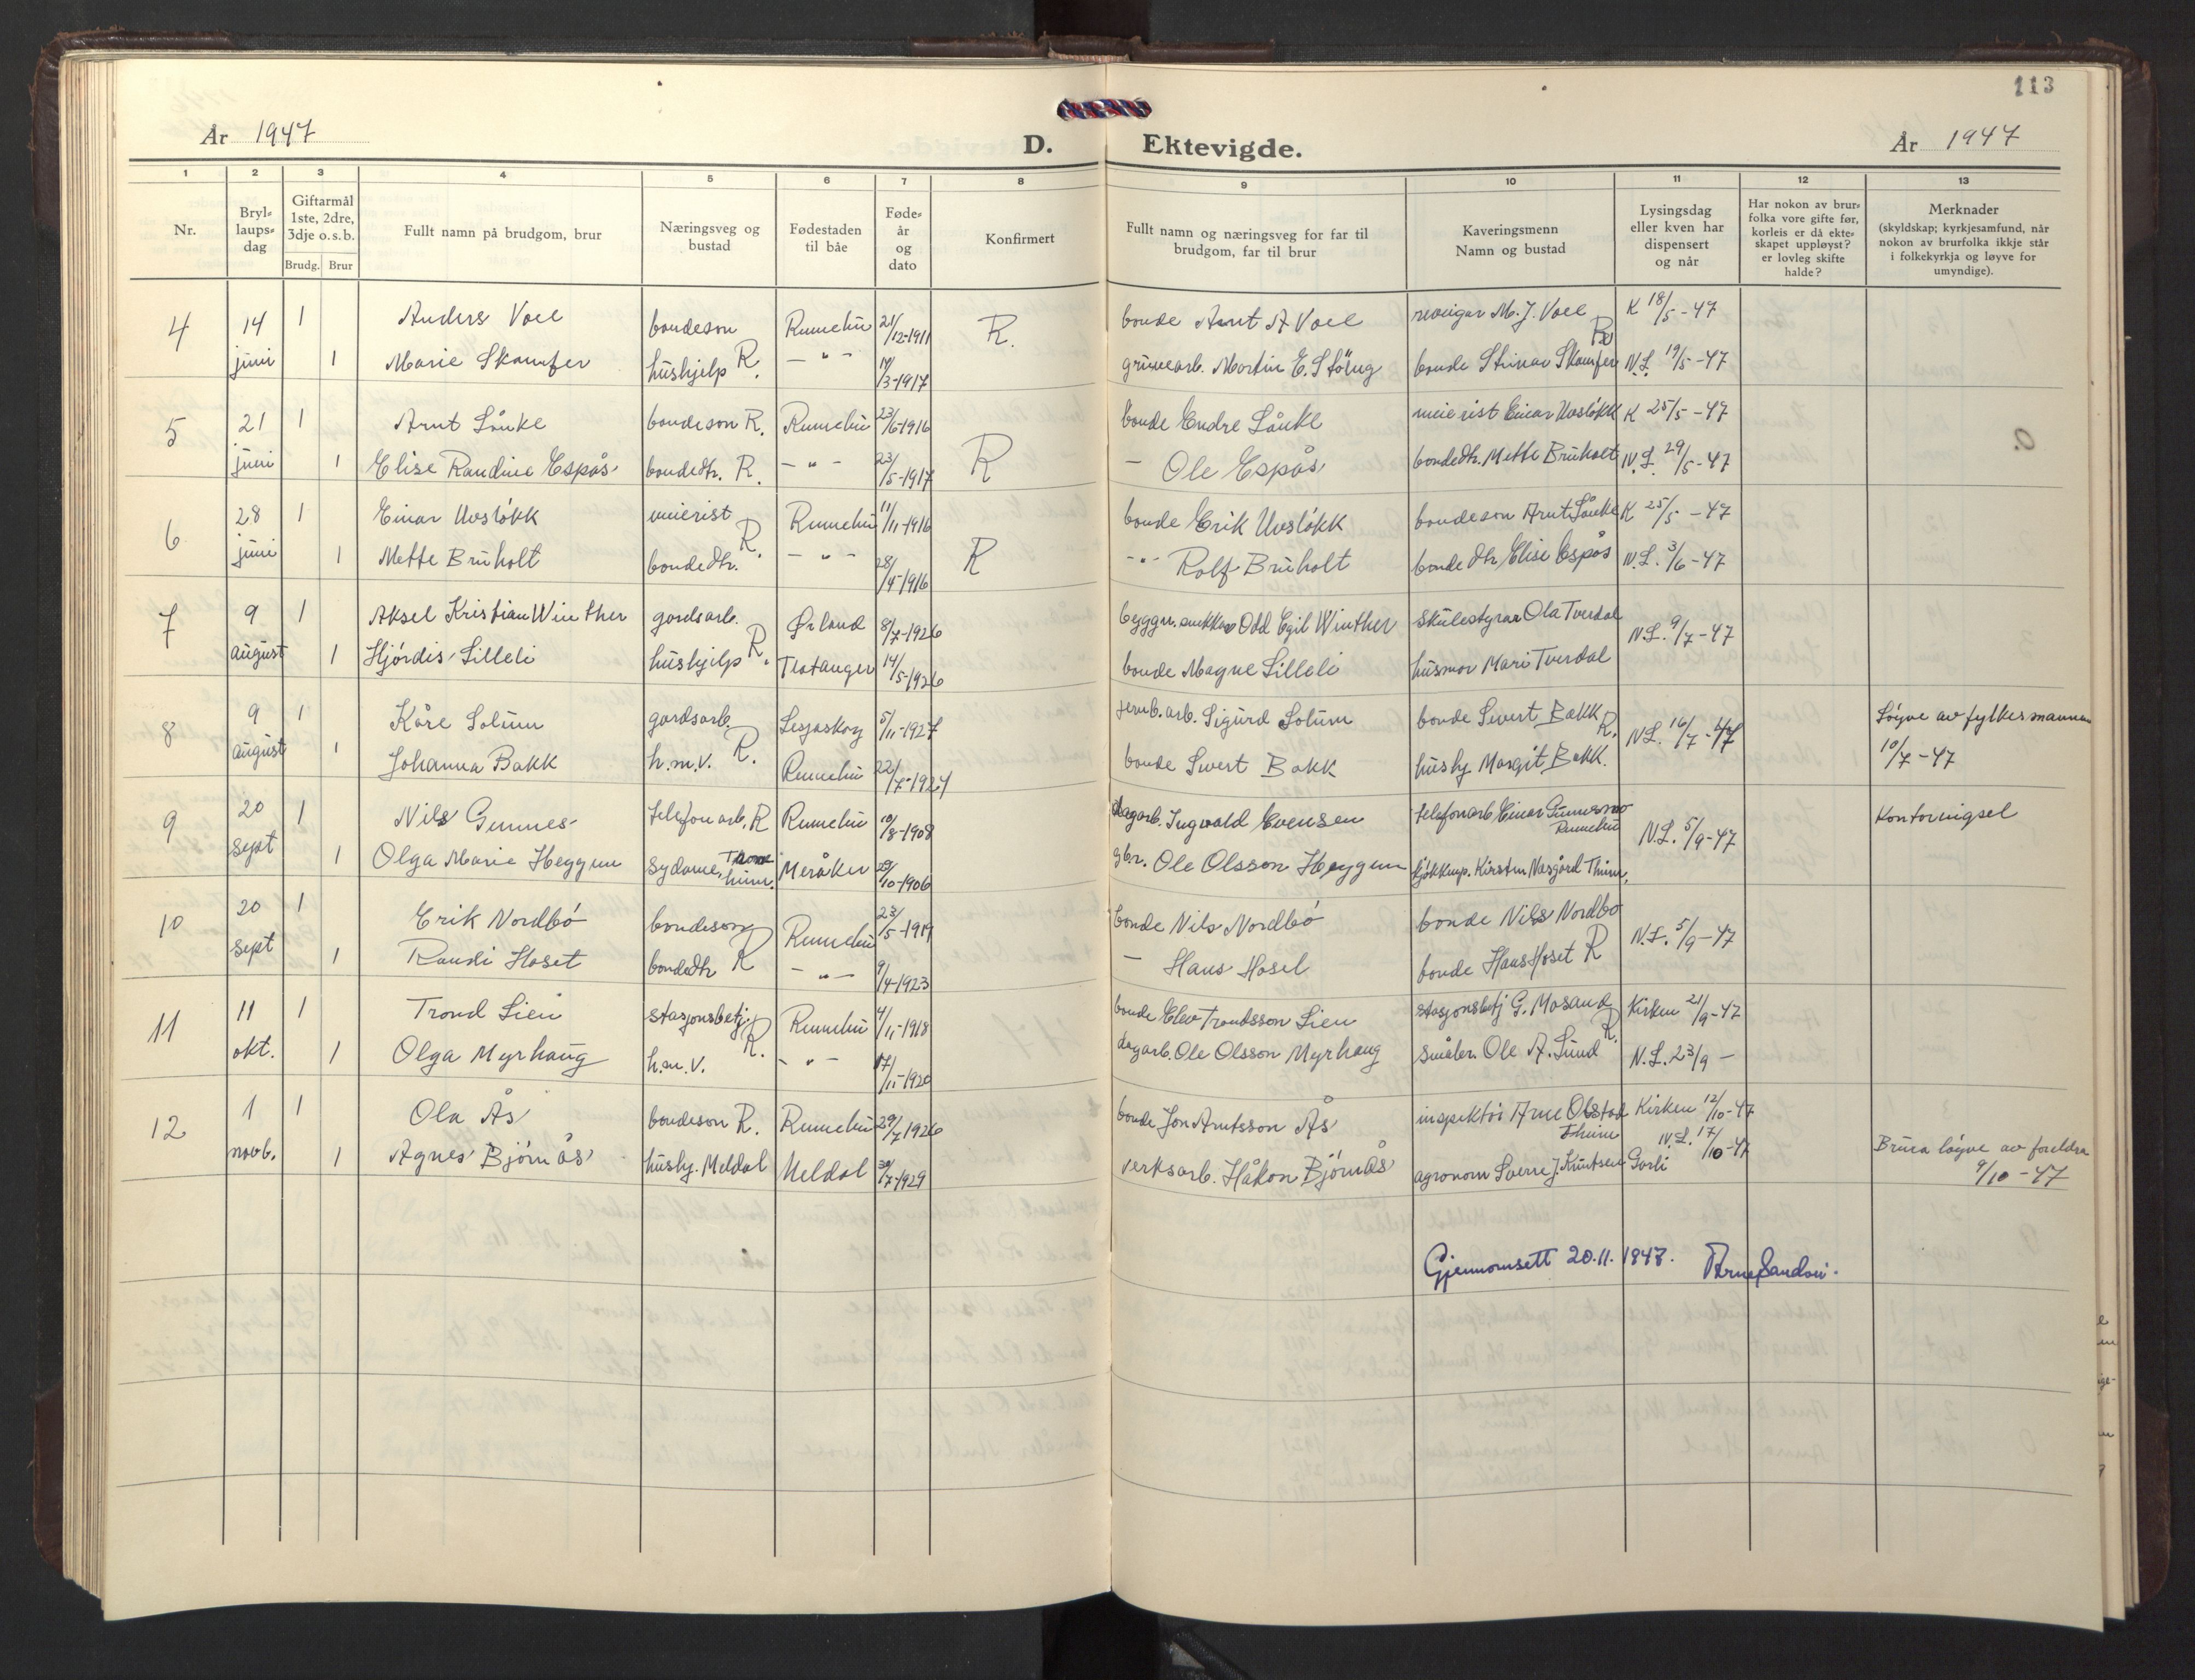 113
År 1947
D. Ektevigde.
År 1947
1 2 3 4 5 6 7 8 9 10 11 12 13
Nr.
Bryl-
laups-
dag
Giftarmål
1ste, 2dre,
3dje o.s.b.
Brudg. Brur
Fullt namn på brudgom, brur
Næringsveg og
bustad
Fødestaden
til båe
Føde-
år
og
dato
Konfirmert
Fullt namn og næringsveg for far til
brudgom, far til brur
Kaveringsmenn
Namn og bustad
Lysingsdag
eller kven har
dispensert
og når
Har nokon av brur-
folka vore gifte før,
korleis er då ekte-
skapet uppløyst?
er lovleg skifte
halde?
Merknader
(skyldskap; kyrkjesamfund, når
nokon av brurfolka ikkje står
i folkekyrkja og løyve for
umyndige).
4 14 1 Anders Voll bondeson Rennebu 21/12-1911 R. bonde Arnt A Voll reveigar M. J. Voll K 18/5-47
juni 1 Marie Skamfer hushjelp R. -"- 14/3-1917 gruvearb. Martin E. Stölug bonde Steinar Skamfer N.L. 19/5-47
5 21 1 Arnt Lånke bondeson R. Rennebu 23/6-1916 bonde Endre Lånke meierist Einar Uvsløkk K 25/5-47
juni 1 Elise Randine Espås bondedtr. R. -"- 23/5-1917 R - Ole Espås bondedtr. Mette Bruholt N.L. 29/5-47
6 28 1 Einar Uvsløkk meierist Rennebu 11/11-1916 bonde Erik Uvsløkk bondeson Arnt Lånke K 25/5-47
juni 1 Mette Bruholt bondedtr. R. -"- 28/4-1916 R -"- Rolf Bruholt bondedtr Elise Espås N.L. 3/6-47
7 9 1 Aksel Kristian Winther gardsarb. Ørland 8/7-1926 byggm. snekker Odd Egil Winther skulestyrar Ola Tverdal N.L. 9/7-47
august 1 Hjørdis Lilleli hushjelp R. Flatanger 14/5-1926 bonde Magne Lilleli husmor Mari Tverdal
8 9 1 Kåre Solum gardsarb. Lesjaskog 5/11-1927 jernb.arb. Sigurd Solum bonde Sivert Bakk R. N.L. 16/7-47 Løyve av fylkesmannen
august 1 Johanna Bakk h.m.v. R. Rennebu 22/7-1924 bonde Sivert Bakk hushj Margit Bakk. 10/7-47
9 20 1 Nils Gunnes telefonarb. R Rennebu 10/8-1908 dagarb. Ingvald Evensen telefonarb Einar Gunnesmo Rennebu N.L. 5/9-47 Kontorvigsel
sept 1 Olga Marie Heggem sydame, Trondheim. Meråker 29/10-1906 gbr. Ole Olsson Heggem kjøkkenp. Kirsten Næsgård Theim.
10 20 1 Erik Nordbø bondeson Rennebu 23/5-1919 bonde Nils Nordbø bonde Nils Nordbø N.L. 5/9-47
sept 1 Randi Hoset bondedtr R -"- 9/4-1923 - Hans Hosel bonde Hans Hoset R
11 11 1 Trond Lien stasjonsbetj. Rennebu 4/11-1918 bonde Elev Trondsson Lien stasjonsbetj G. Mosand Kirken 21/9-47
okt. 1 Olga Myrhaug h.m.v. R. -"- 17/11-1920 dagarb. Ole Olsson Myrhaug småbr. Ole A. Lund R. N.L. 23/9 -
12 1 1 Ola Ås bondeson R. Rennebu 29/7 1926 bonde Jon Arntsson Ås inspektør Arne Olstad Theim Kirken 12/10-47
novb. 1 Agnes Bjørnås hushj. Meldal Meldal 30/7-1929 verksarb. Håkon Bjørnås agronom Sverre J. Knutsen Gorli N.L. 17/10-47 Brura løyve av foreldra
9/10-47
Gjennomsett 20.11.1947. Arne Sandvi.